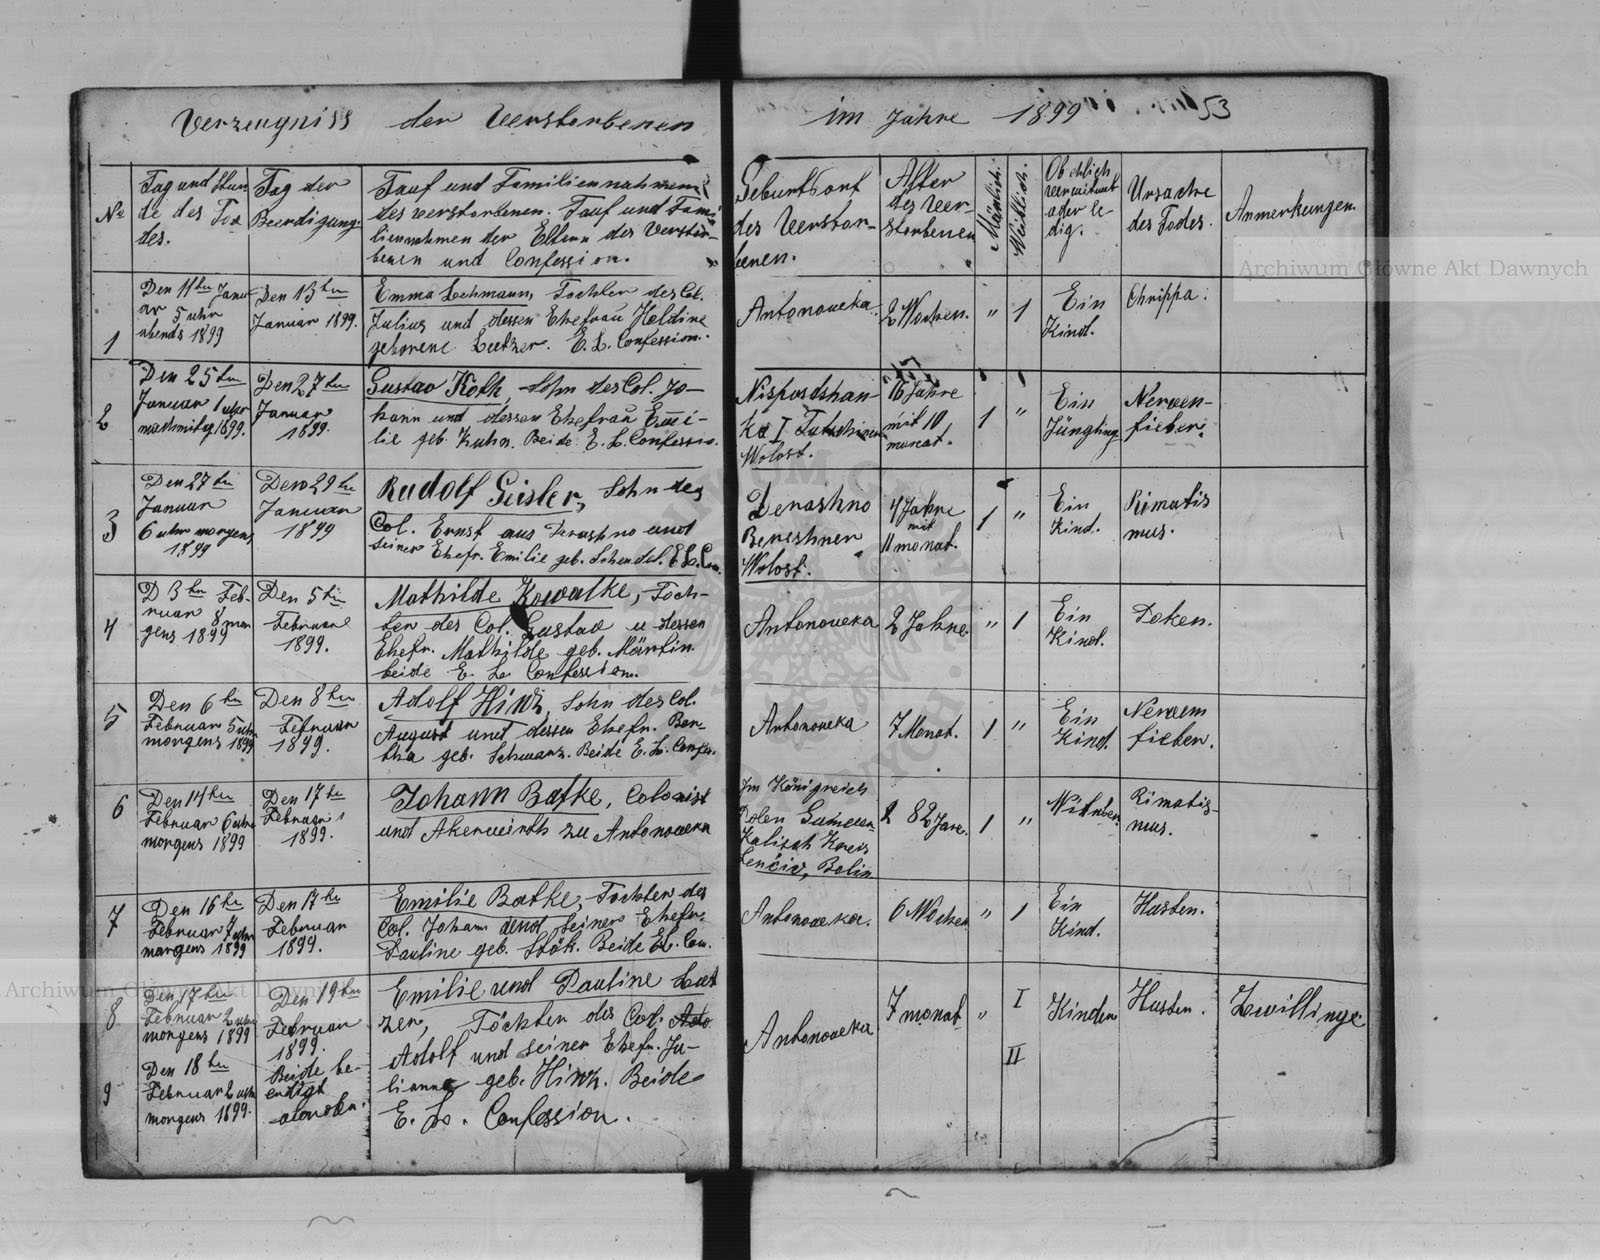 Verzeugniss der Verstorbenen im Jahre 1899 53
No
Tag und Stun
de des To
des.
Tag der
Beerdigung.
Tauf und Familiennahmen
des verstorbenen. Tauf und Fami
liennahmen der Eltern des Verstor-
benen und Confession.
Geburtsort
des Verstor-
benen.
Alter
des Ver-
storbenen
Mänlich.
Weiblich.
Ob ehlich
verwitwet
oder le
dig.
Ursache
des Todes.
Anmerkungen.
1
Den 11ten Janu
ar 5 uhr
abends 1899
Den 13ten
Januar 1899.
Emma Lehmann, Tochter des Col.
Julius und dessen Ehefrau Holdine
geborene Lutzer. E. L. Confession.
Antonowka
2 Wochen.
" 1
Ein
Kind.
Chrippa.
2
Den 25ten
Januar 1 uhr
nachmitag 1899.
Den 27ten
Januar
1899.
Gustav Koth, Sohn des Col. Jo-
hann und dessen Ehefrau Emi-
lie geb. Kuhn. Beide E. L. Confession.
Ka I
Wolost.
16 Jahre
mit 10
monat.
1 "
Ein
Jüngling
Nerven-
fieber.
3
Den 27ten
Januar
6 uhr morgens
1899
Den 29ten
Januar
1899
Rudolf Geisler, Sohn des
Col. Ernst aus Derashno und
seiner Ehefr. Emilie geb. Schendel. E. L. Con.
Derashno
Bereshner
Wolost.
4 Jahre
mit
11 monat.
1 "
Ein
Kind.
Rimatis
mus.
4
D 3ten Feb-
ruar 8 mor
gens 1899
Den 5ten
Februar
1899.
Mathilde Kowalke, Toch-
ter des Col. Gustav u dessen
Ehefr. Mathilde geb. Märtin.
beide E. L. Confession.
Antonowka
2 Jahre.
" 1
Ein
Kind.
Poken.
5
Den 6ten
Februar 5 uhr
morgens 1899
Den 8ten
Februar
1899.
Adolf Hinz, Sohn des Col.
August und dessen Ehefr. Ber-
tha geb. Schwarz. Beide E. L. Confes.
Antonowka
7 Monat.
1 "
Ein
Kind.
Nerven
fieber.
6
Den 14ten
Februar 6 uhr
morgens 1899
Den 17ten
Februar
1899.
Johann Batke, Colonist
und Akerwirth zu Antonowka
Im Königreich
Polen
Kalisch Kreis
82 Jare.
1 "
Witwber
Rimatis-
mus.
7
Den 16ten
Februar 7 uhr
morgens 1899
Den 17ten
Februar
1899.
Emilie Batke, Tochter des
Col. Johann und seiner Ehefr.
Pauline geb. Stök. Beide E. L. Con.
Antonowka.
6 Wochen
" 1
Ein
Kind.
Husten.
8
Den 17ten
Februar 2 uhr
morgens 1899
9
Den 18ten
Februar 2 uhr
morgens 1899.
Den 19ten
Februar
1899.
Beide be-
erdigt
Emilie und Pauline Lut
zer, Töchter des Col. Ado
Adolf und seiner Ehefr. Ju-
lianna geb. Hinz. Beide
E. L. Confession.
Antonowka
7 monat
" I
II
Kinder
Husten.
Zwillinge
Archiwum Główne Akt Dawnych
Archiwum Główne Akt Dawnych